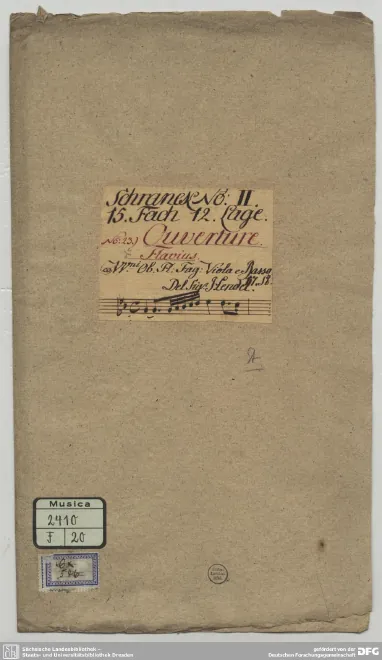 Schranck No: II.
15. Fach 12. Lage.
No: 23.) Ouverture.
Flavius
VVni Ob. Fl. Fag: Viola e Basso
Del Sigr. Hendel.
Musica
2410
F 20
Sächsische Landesbibliothek –
Staats- und Universitätsbibliothek Dresden
gefördert von der
Deutschen Forschungsgemeinschaft
DFG